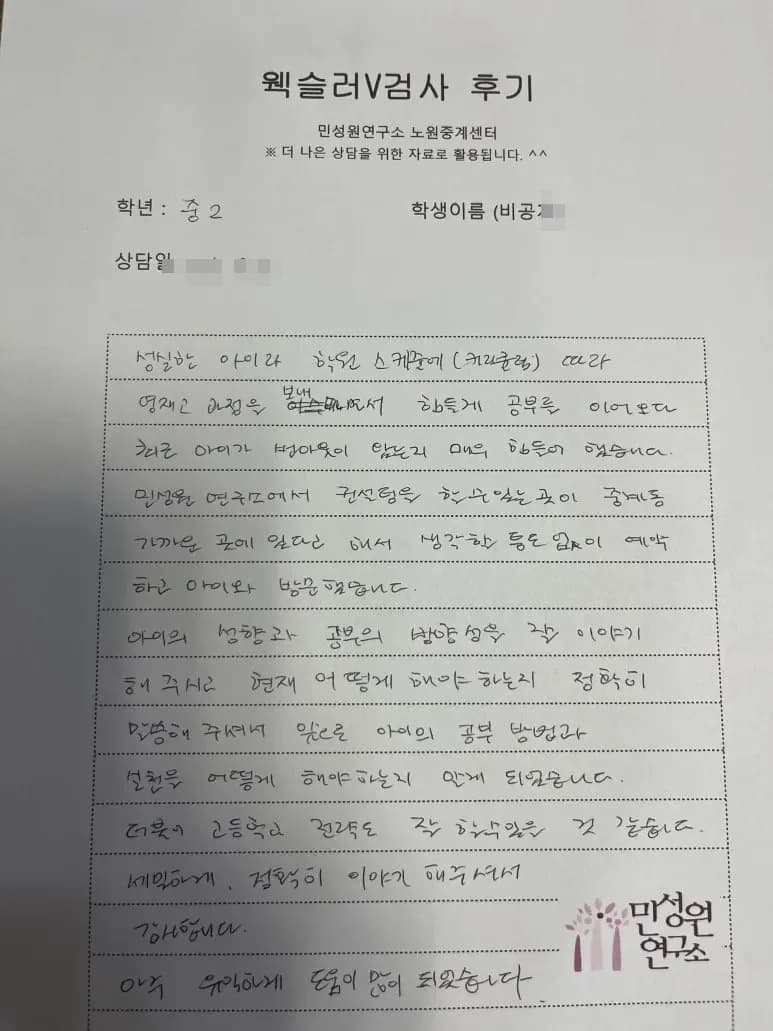 웩슬러V검사 후기
민성원연구소 노원중계센터
※ 더 나은 상담을 위한 자료로 활용됩니다. ^^
학년 : 중2
학생이름 (비공개
상담일
성실한 아이라 학원 스케줄에 (커리큘럼) 따라
영재고 과정을 보내면서 힘들게 공부를 이어오다
최근 아이가 번아웃이 왔는지 매우 힘들어 했습니다.
민성원 연구소에서 컨설팅을 할수있는 곳이 중계동
가까운 곳에 있다고 해서 생각할 틈도 없이 예약
하고 아이와 방문했습니다.
아이의 성향과 공부의 방향성을 잘 이야기
해 주시고 현재 어떻게 해야 하는지 정확히
말씀해 주셔서 앞으로 아이의 공부 방법과
실천을 어떻게 해야하는지 알게 되었습니다.
더불어 고등학교 전략도 잘 할수있을 것 같습니다.
세밀하게, 정확히 이야기 해주셔서
감사합니다.
아주 유익하게 도움이 많이 되었습니다
민성원
연구소